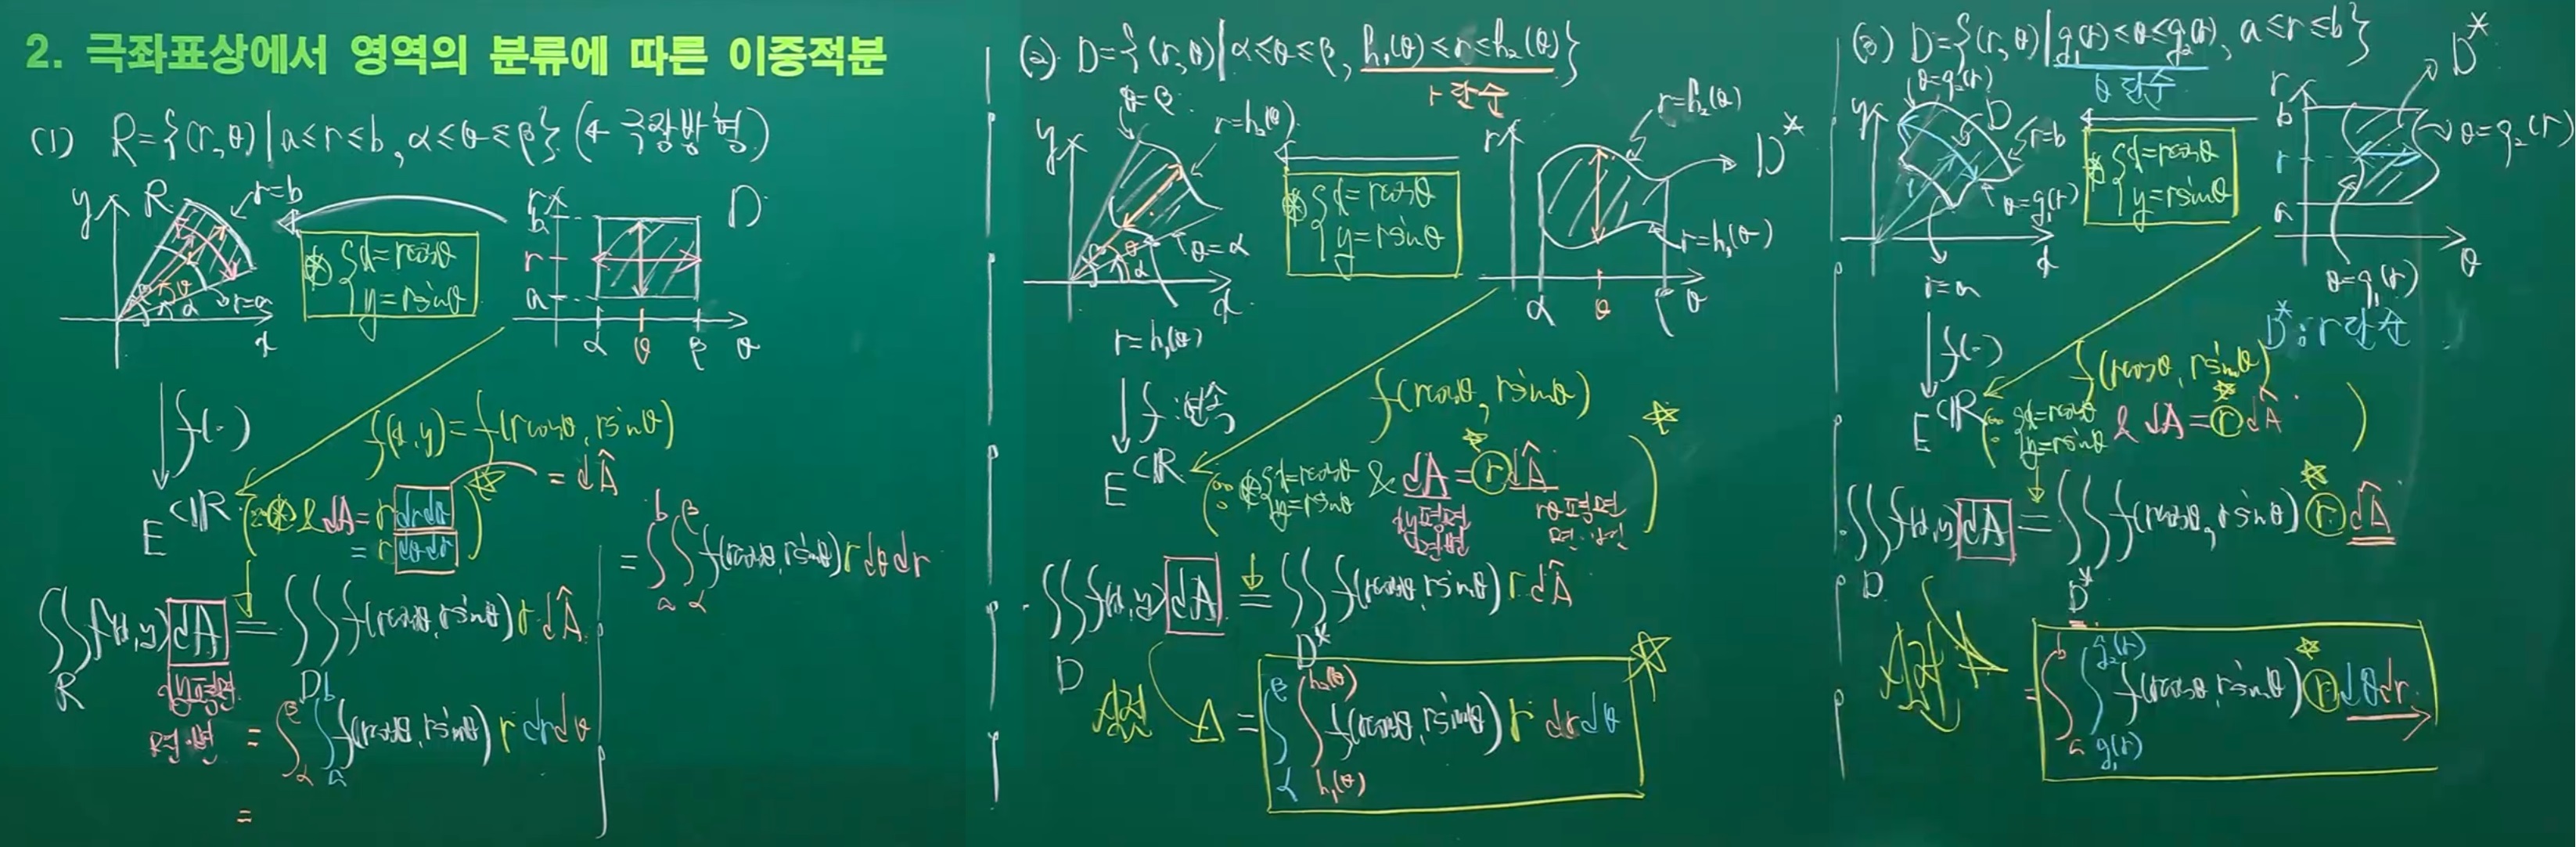 2. 극좌표상에서 영역의 분류에 따른 이중적분
(1) R={(r,θ)|a≤r≤b, α≤θ≤β} (← 극장방형)
y R r=b
θ α r=a
x
⊛ { x=rcosθ
y=rsinθ
r D
b
r
a
α θ β θ
f(·)
f(x,y)=f(rcosθ, rsinθ)
E⊂ℝ (∵⊛ & dA=r drdθ = dÂ
= r dθdr) ☆
∬f(x,y)dA = ∬f(rcosθ, rsinθ) r dÂ
R D
= ∫_α^β ∫_a^b f(rcosθ, rsinθ) r drdθ
=
= ∫_a^b ∫_α^β f(rcosθ, rsinθ) r dθdr
(2) D={(r,θ)|α≤θ≤β, h₁(θ)≤r≤h₂(θ)}
r단순
y θ=β r=h₂(θ)
θ α θ=α
x
r=h₁(θ)
⊛ { x=rcosθ
y=rsinθ
r r=h₂(θ) D*
r=h₁(θ)
α θ β θ
f:연속
f(rcosθ, rsinθ)
E⊂ℝ (∵⊛ { x=rcosθ y=rsinθ & dA=r dÂ) ☆
∬f(x,y)dA = ∬f(rcosθ, rsinθ) r dÂ
D D*
= ∫_α^β ∫_{h₁(θ)}^{h₂(θ)} f(rcosθ, rsinθ) r drdθ ☆
(3) D={(r,θ)|g₁(r)≤θ≤g₂(r), a≤r≤b}
θ단순
y θ=g₂(r) D r=b
θ=g₁(r)
x
r=a
⊛ { x=rcosθ
y=rsinθ
r D*
b
r θ=g₂(r)
a
θ
θ=g₁(r)
D*: r단순
f(·)
f(rcosθ, rsinθ)
E⊂ℝ (∵ { x=rcosθ y=rsinθ & dA=r dÂ)
∬f(x,y)dA = ∬f(rcosθ, rsinθ) r dÂ
D D*
= ∫_a^b ∫_{g₁(r)}^{g₂(r)} f(rcosθ, rsinθ) r dθdr